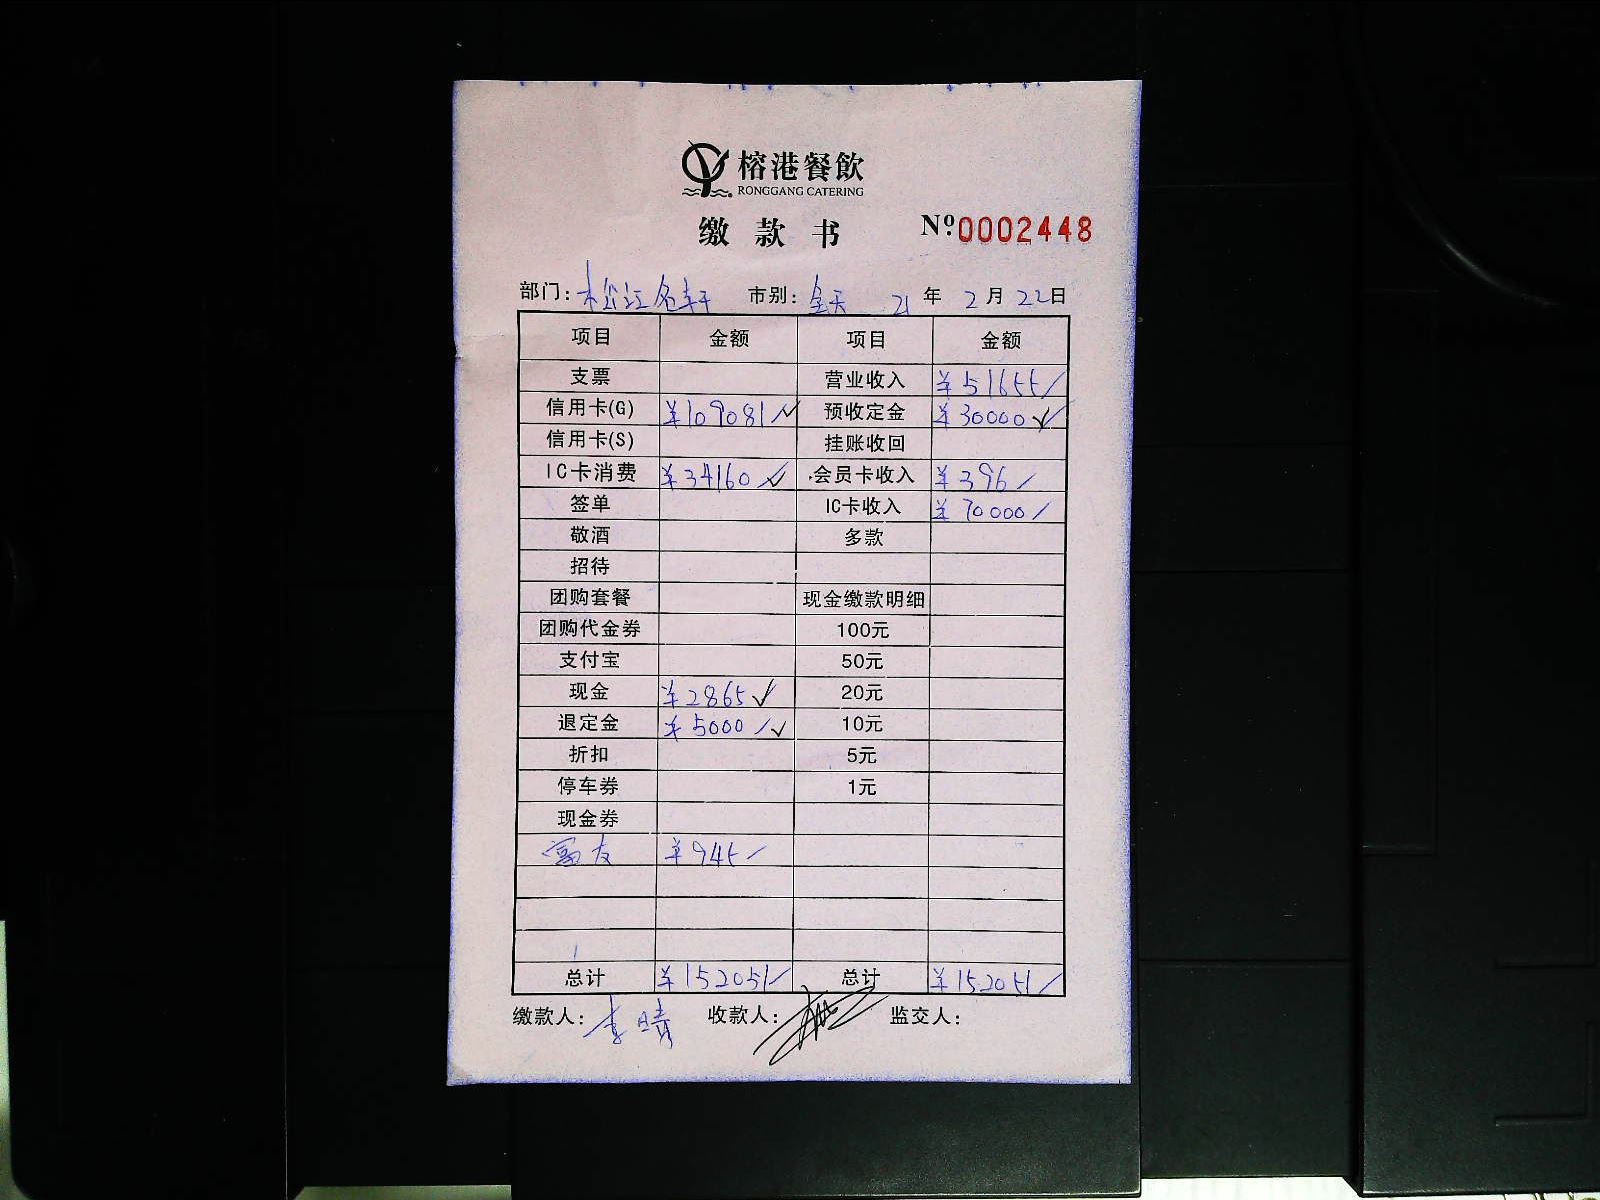 榕港餐飲
RONGGANG CATERING
缴款书 Nº 0002448
部门: 松江名轩 市别: 全天 21 年 2 月 22 日
项目 金额 项目 金额
支票 营业收入 ¥51655
信用卡(G) ¥109081 预收定金 ¥30000
信用卡(S) 挂账收回
IC卡消费 ¥34160 会员卡收入 ¥396
签单 IC卡收入 ¥70000
敬酒 多款
招待
团购套餐 现金缴款明细
团购代金券 100元
支付宝 50元
现金 ¥2865 20元
退定金 ¥5000 10元
折扣 5元
停车券 1元
现金券
富友 ¥945
总计 ¥152051 总计 ¥152051
缴款人: 李晴 收款人: 监交人: